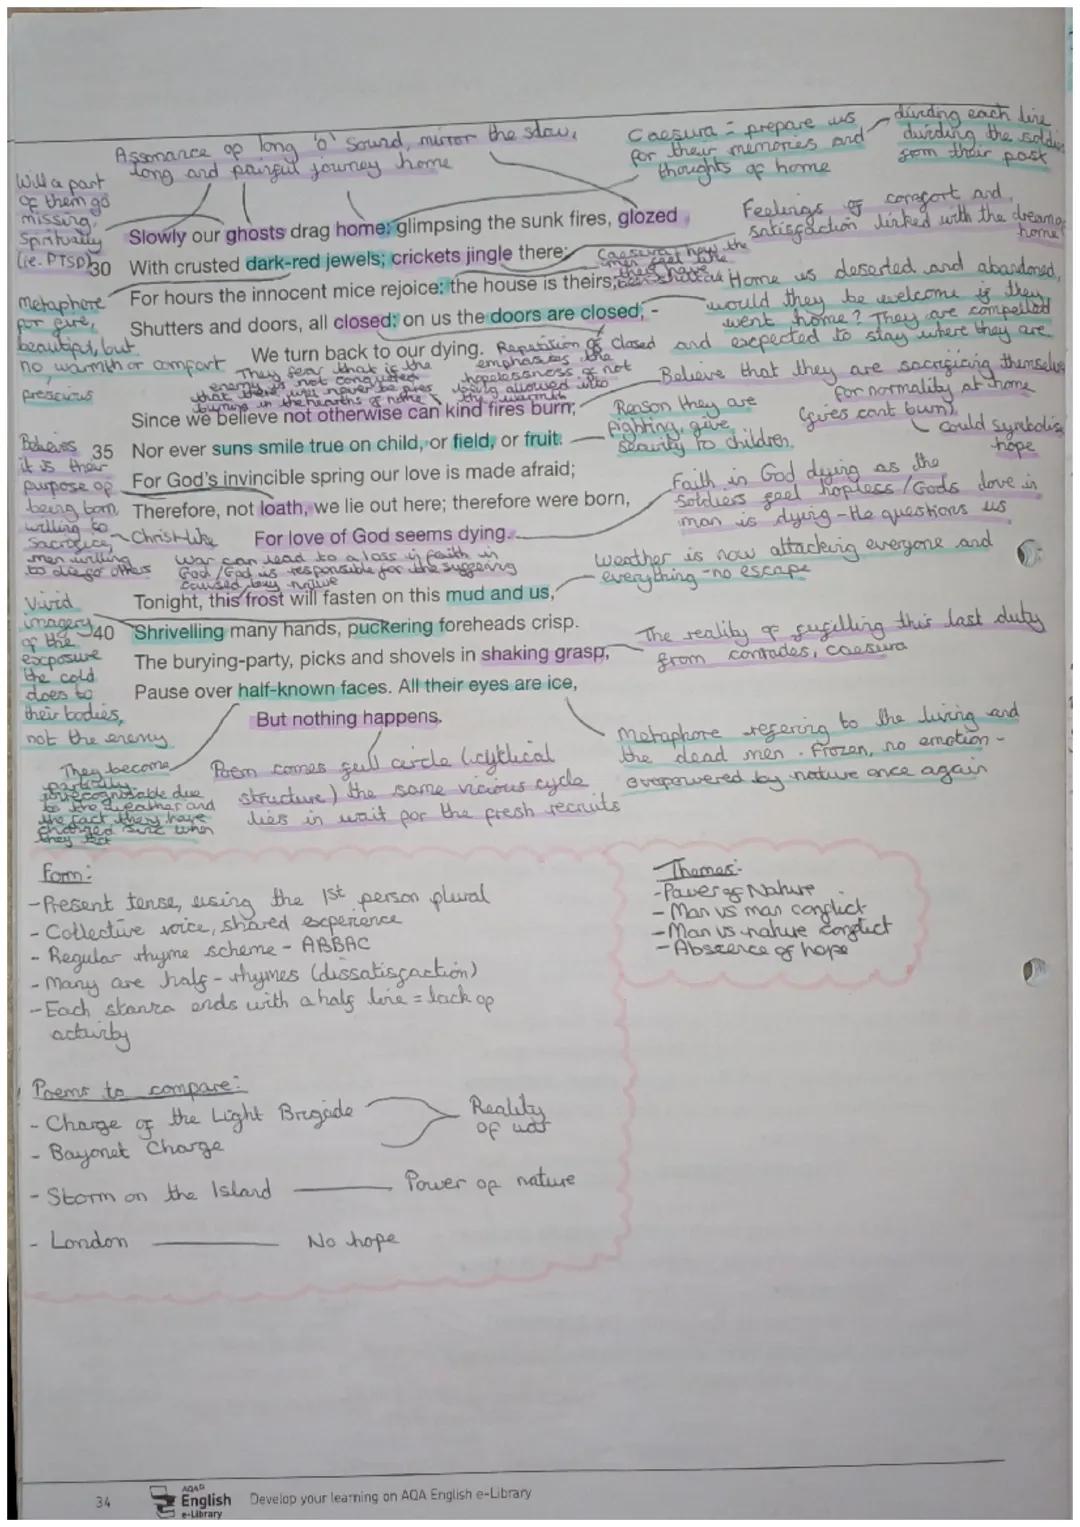 Assonance of long 'o' sound, mirror the slow,
long and painful journey home
Caesura = prepare us
for their memories and
thoughts of home
dividing each line
dividing the
from their past
Will a part
of them go
missing,
Spiritually
(ie. PTSD)
Slowly our ghosts drag home: glimpsing the sunk fires, glozed
30 With crusted dark-red jewels; crickets jingle there;
For hours the innocent mice rejoice: the house is theirs;
Shutters and doors, all closed: on us the doors are closed, -
We turn back to our dying.
Feelings of comfort and
satisfaction linked with the
home
Caesura how the
men feel like
they have
been
Metaphore
for fire,
beautiful, but
no warmth or comfort
prescious
Home is deserted and abandoned,
would they be welcome if they
went home? They are compelled
and expected to stay where they are
Repetition of closed
emphasises the
hopelessness of not
being allowed into
the warmth
They fear that if the
enemy is not conquered
that there will never be fires
burning in the hearths of
Since we believe not otherwise can kind fires burn;
35 Nor ever suns smile true on child, or field, or fruit.
For God's invincible spring our love is made afraid;
Therefore, not loath, we lie out here; therefore were born,
For love of God seems dying.
Believe that they are sacrificing
for normality at home
(fires cant burn)
could symbolise
hope
Reason they are
fighting, give
security to children.
Believes
it is their
purpose of
being born
willing to
sacrifice,
men willing
to die for others
Christ-like
Faith in God dying as the
soldiers feel hopless/Gods love in
man is dying - He questions us
War can lead to a loss in faith in
God/God is responsible for the suffering
caused by
Weather is now attacking everyone and
everything - no escape
Tonight, this frost will fasten on this mud and us,
40 Shrivelling many hands, puckering foreheads crisp.
The burying-party, picks and shovels in shaking grasp,
Pause over half-known faces. All their eyes are ice,
But nothing happens.
Vivid
imagery
of the
exposure
the cold
does to
their bodies,
not the enemy
The reality of fufilling this last duty
from comrades, caesura
They become
partially
unrecognisable due
to the weather and
the fact they have
changed since when
they
Poem comes full circle (cyclical
structure) the same vicious cycle
lies in wait for the fresh recruits
Metaphore refering to the living and
the dead men. Frozen, no emotion -
overpowered by nature once again
Form:
- Present tense, using the 1st person plural
- Collective voice, shared experience
- Regular rhyme scheme - ABBAC
- Many are half-rhymes (dissatisfaction)
- Each stanza ends with a half line = lack of
activity
Themes:
- Power of Nature
- Man vs man conflict
- Man vs nature conflict
- Abscence of hope
Poems to compare:
- Charge of the Light Brigade
- Bayonet Charge
Reality
of war
- Storm on the Island
Power of nature
- London
No hope
34
AQA
English
e-Library
Develop your learning on AQA English e-Library